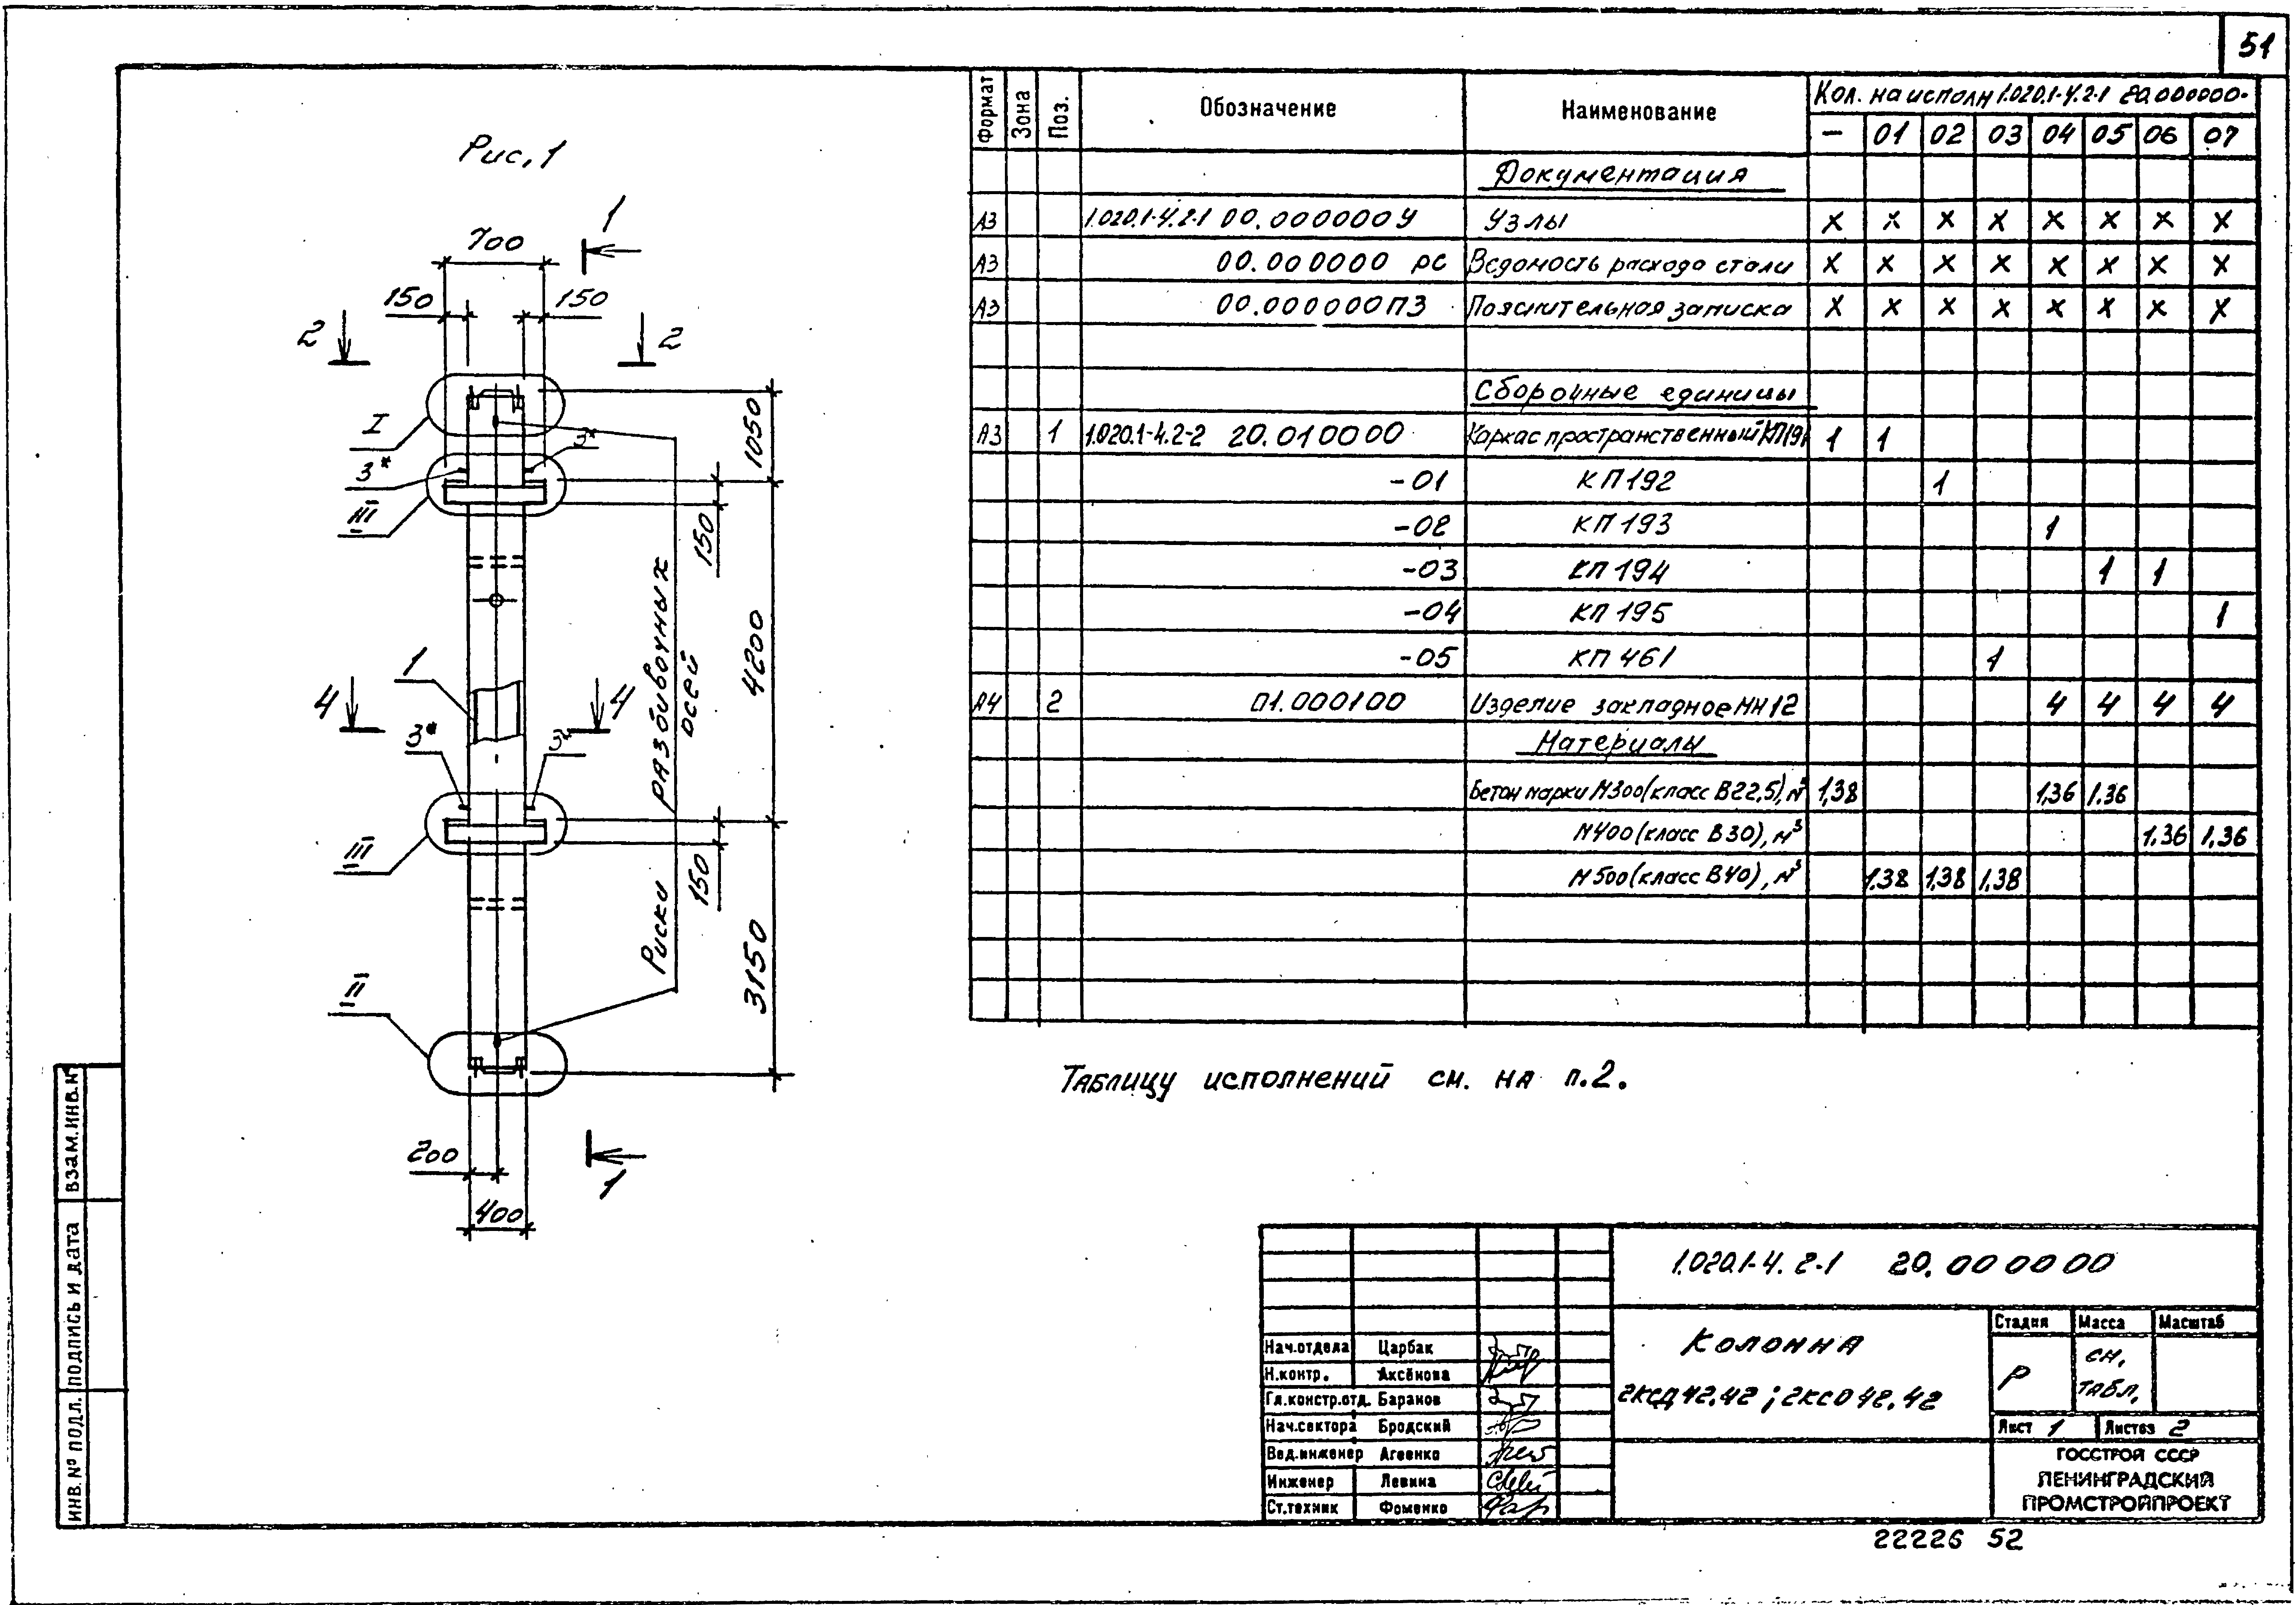 51
Рис. 1
1
700
150 150
2 2
I
3* 3*
III
1050
150
4200
1
4 4
3* 3*
III
150
3150
Риски разбивочных осей
II
200
400
1
Формат Зона Поз. Обозначение Наименование Кол. на исполн 1.020.1-4.2-1 20.000000-
— 01 02 03 04 05 06 07
Документация
А3 1.020.1-4.2-1 00.000000У Узлы X X X X X X X X
А3 00.000000 РС Ведомость расхода стали X X X X X X X X
А3 00.000000ПЗ Пояснительная записка X X X X X X X X
Сборочные единицы
А3 1 1.020.1-4.2-2 20.010000 Каркас пространственный КП191 1 1
-01 КП192 1
-02 КП193 1
-03 КП194 1 1
-04 КП195 1
-05 КП461 1
А4 2 01.000100 Изделие закладное МН12 4 4 4 4
Материалы
Бетон марки М300 (класс В22,5), м³ 1,38 1,36 1.36
М400 (класс В30), м³ 1,36 1,36
М500 (класс В40), м³ 1,38 1,38 1,38
Таблицу исполнений см. на л.2.
1.020.1-4.2-1 20.000000
Колонна
2КСД42.42; 2КСО42.42
Стадия Масса Масштаб
Р см. табл.
Лист 1 Листов 2
ГОССТРОЙ СССР
ЛЕНИНГРАДСКИЙ
ПРОМСТРОЙПРОЕКТ
Нач.отдела Царбак
Н.контр. Аксёнова
Гл.констр.отд. Баранов
Нач.сектора Бродский
Вед.инженер Агеенко
Инженер Левина
Ст.техник Фоменко
ИНВ. № ПОДЛ. ПОДПИСЬ И ДАТА ВЗАМ.ИНВ.№
22226 52